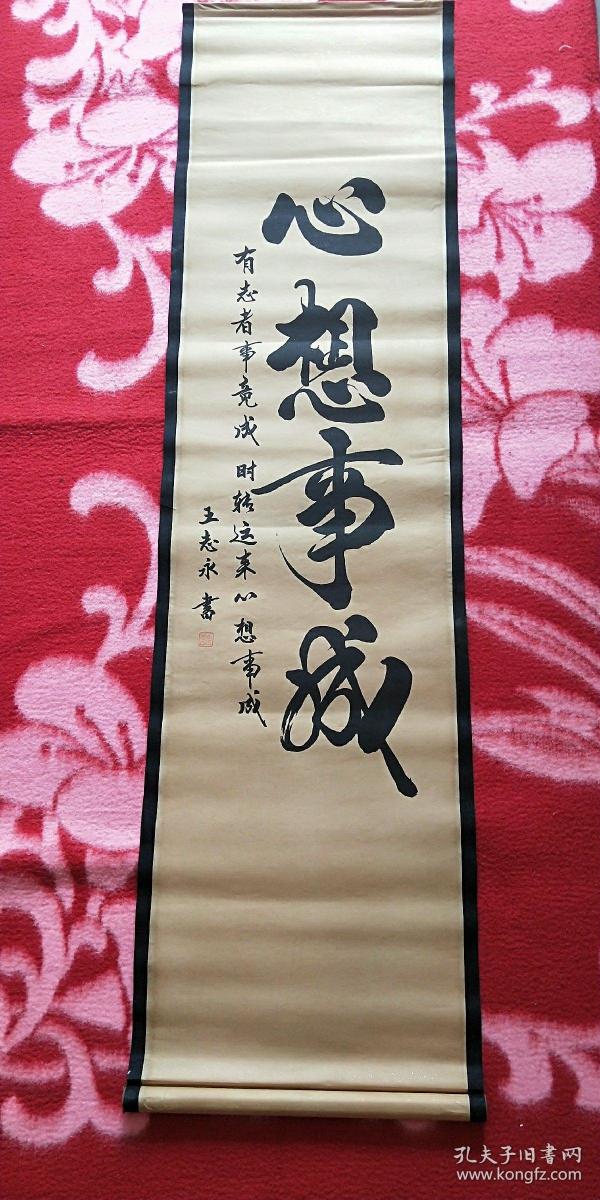 心想事成
有志者事竟成 时转运来心想事成
王志永书
孔夫子旧书网
www.kongfz.com